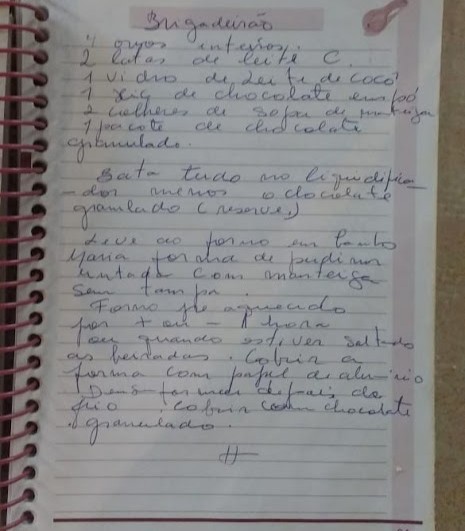 Brigadeirão
4 ovos inteiros.
2 latas de leite C.
1 vidro de Leite de cocô
1 xíc de chocolate em pó
2 colheres de sopa de manteiga
1 pacote de chocolate
granulado.
Bata tudo no liquidifica-
-dor menos o chocolate
granulado (reserve,)
Leve ao forno em banho
Maria forma de pudim
untada com manteiga
sem tampa.
Forno pré aquecido
por + ou - 1 hora
ou quando estiver soltado
as beiradas. Cobrir a
forma com papel de alumínio
Desenformar depois de
frio. Cobrir com chocolate
granulado.